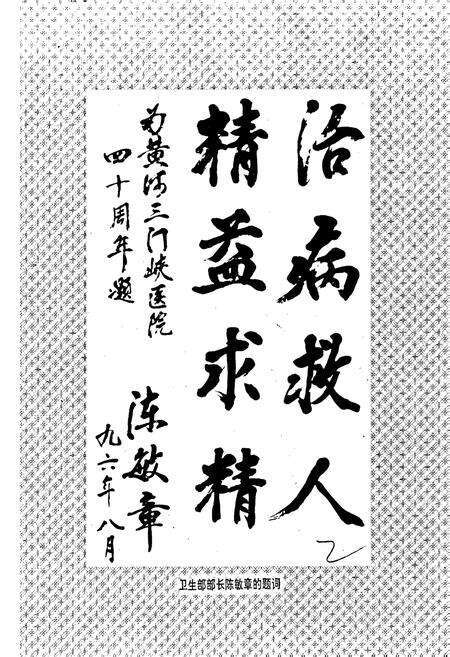 治病救人
精益求精
为黄河三门峡医院
四十周年题
陈敏章
九六年八月
卫生部部长陈敏章的题词